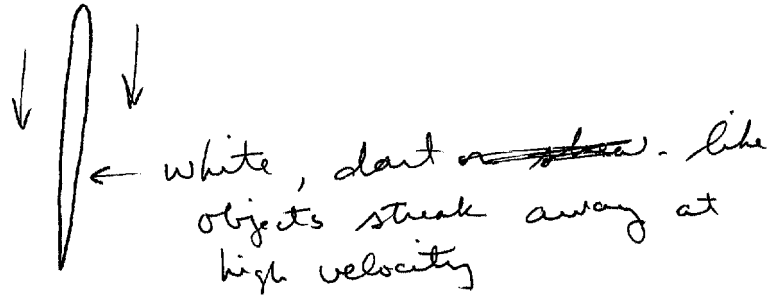 white, dart - like
objects streak away at
high velocity